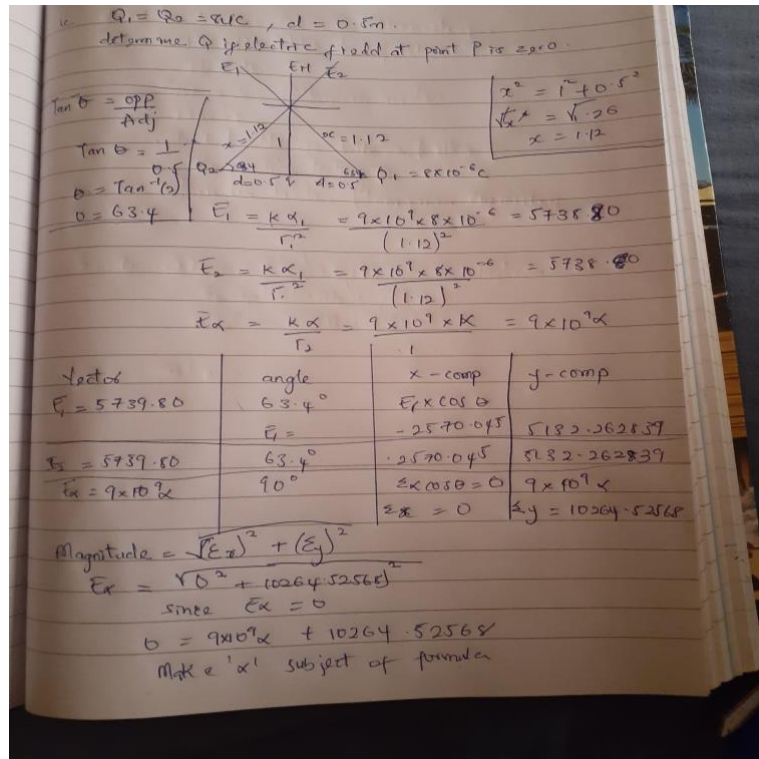 Q₁ = Q₂ = 8μC , d = 0.5m.
determine Q if electric field at point P is zero.
E₁ E₂
Tan θ = opp
Adj
Tan θ = 1
0.5
θ = Tan⁻¹(2)
θ = 63.4
x² = 1² + 0.5²
x = 1.12
x = 1.12
1
x = 1.12
Q₂
d=0.5
d=0.5
Q₁ = 8×10⁻⁶c
E₁ = Kα₁ = 9×10⁹×8×10⁻⁶ = 5738.80
r₁² (1.12)²
E₂ = Kα₁ = 9×10⁹×8×10⁻⁶ = 5738.80
r₁² (1.12)²
Eα = Kα = 9×10⁹×K = 9×10⁹α
r₂ 1
Vector angle x-comp y-comp
E₁ = 5739.80 63.4° E₁×cos θ
E₁ = -2570.045 5132.262839
= 5739.80 63.4° 2570.045 5132.262839
Eα = 9×10⁹α 90° Eαcosθ = 0 9×10⁹α
Σx = 0 Σy = 10264.52568
Magnitude = √(Σx)² + (Σy)²
Eα = √0² + 10264.52568)²
since Eα = 0
0 = 9×10⁹α + 10264.52568
Make 'α' subject of formula